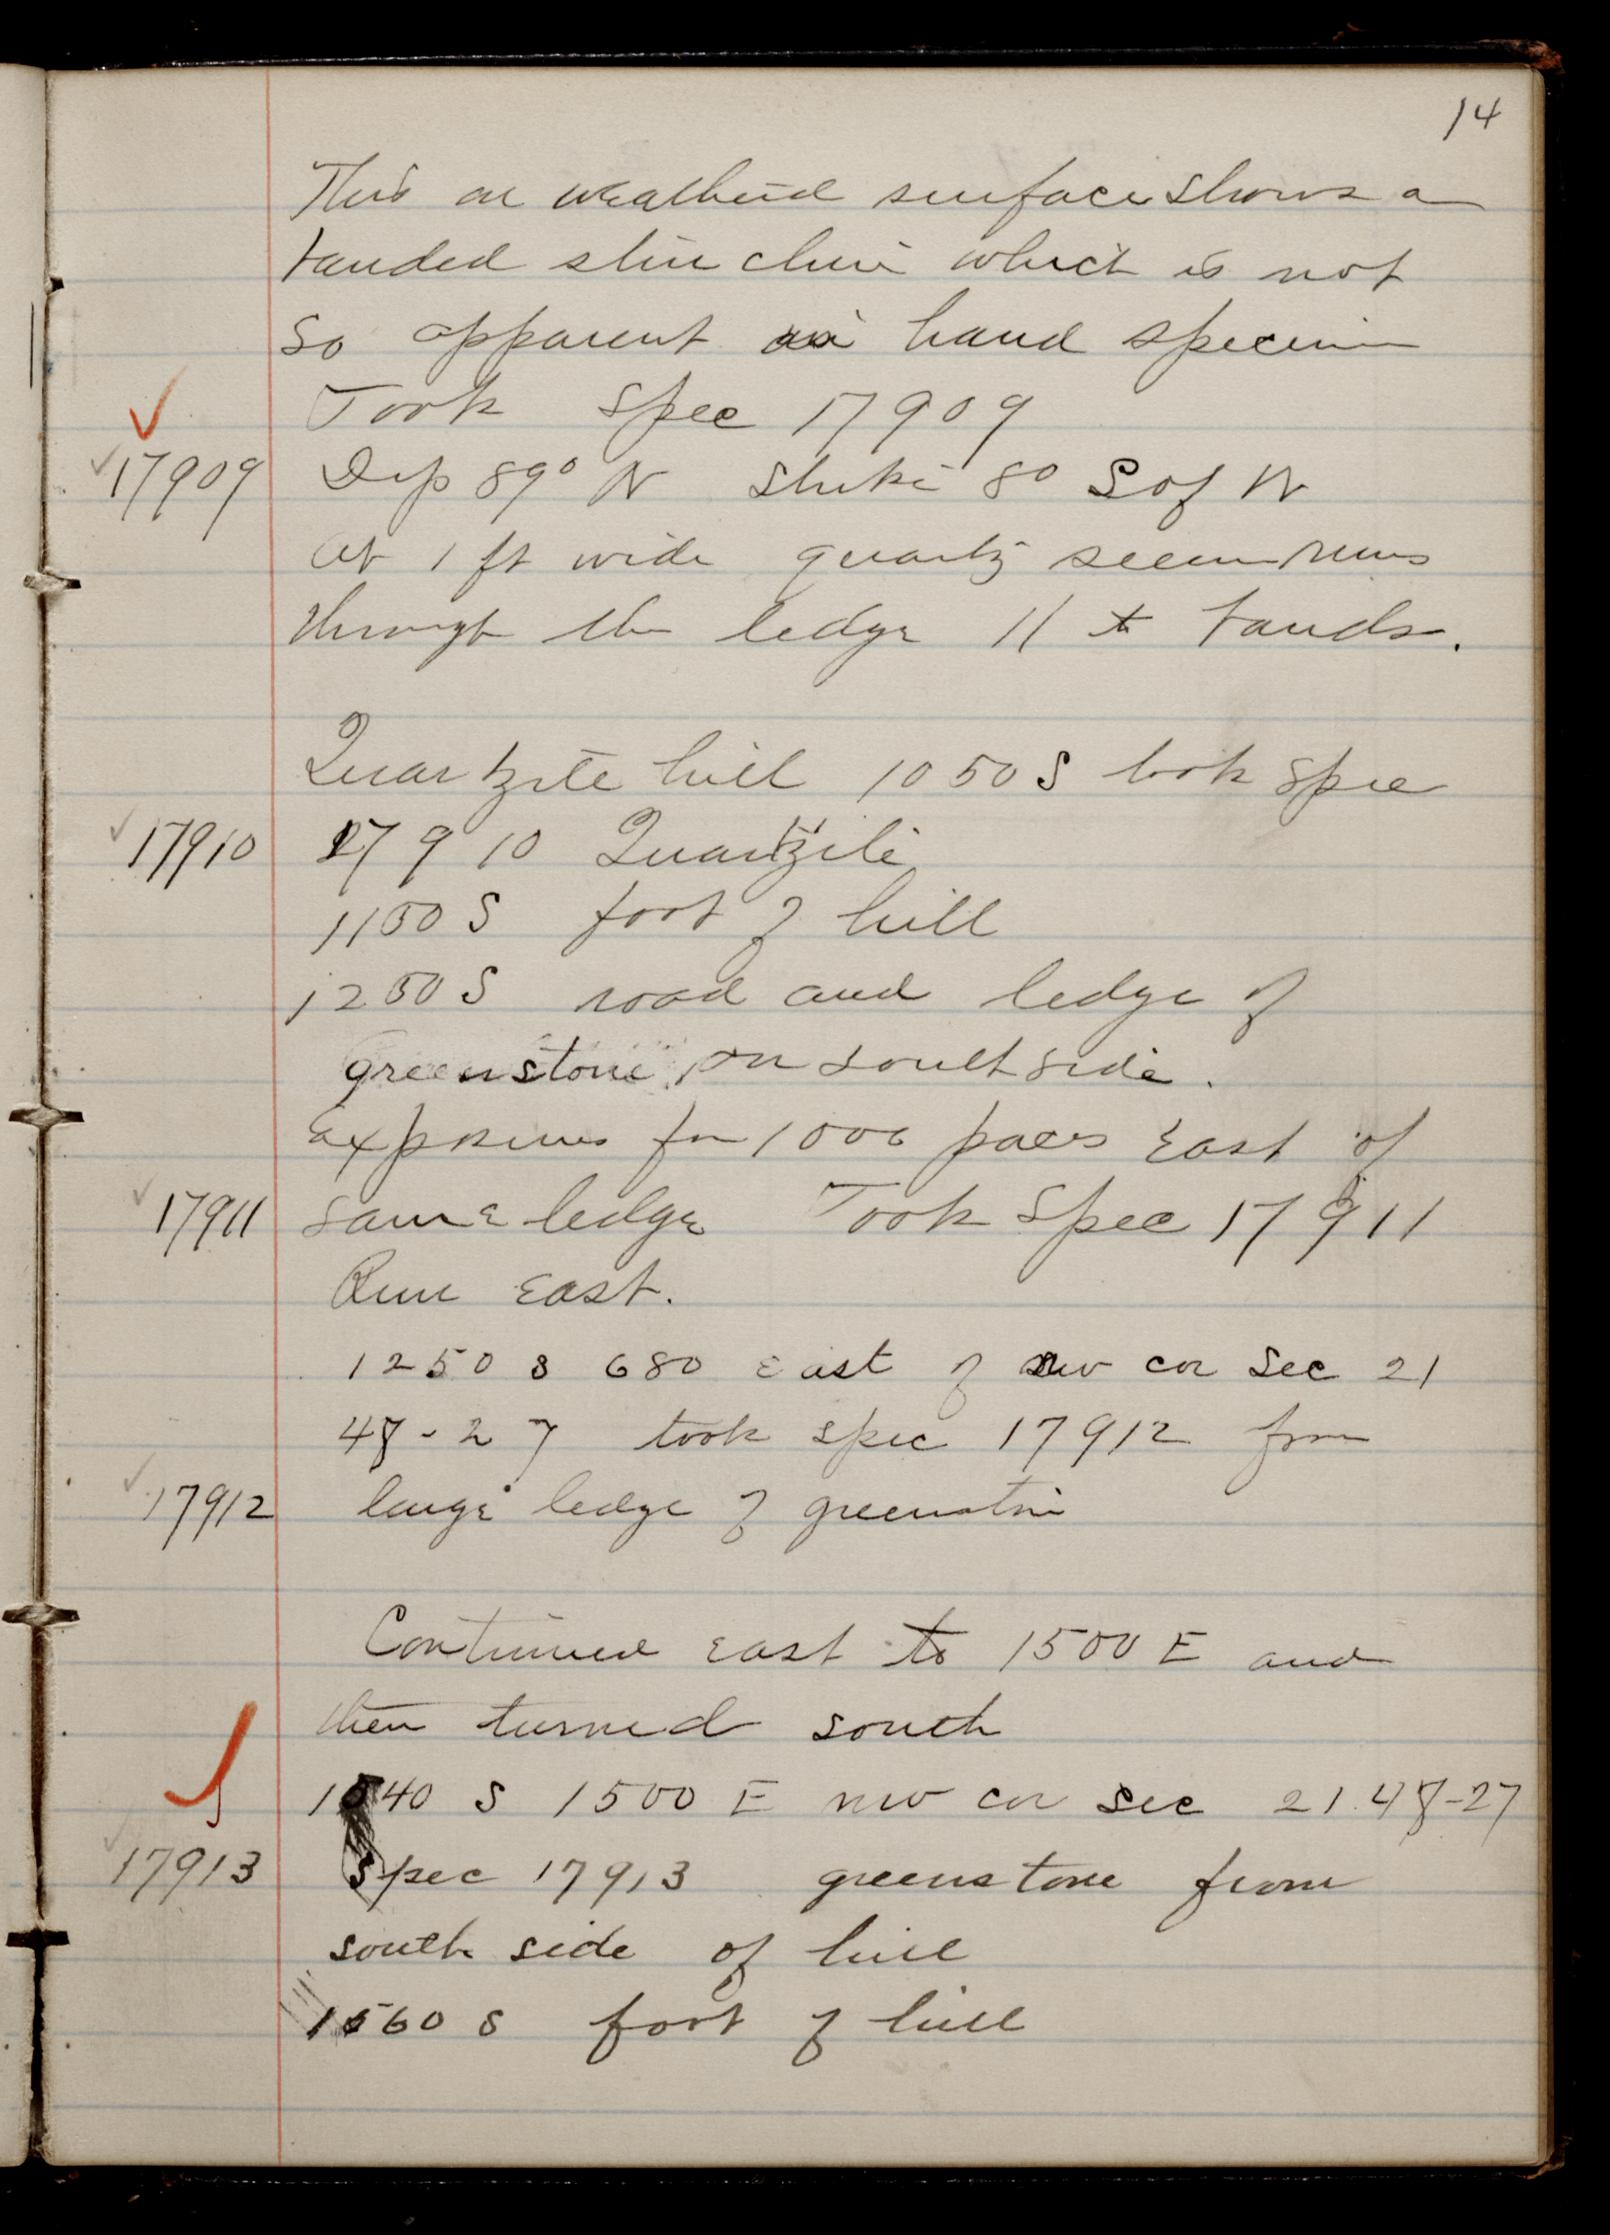 14
This on weathered surface shows a
banded structure which is not
so apparent in hand specimen
Took Spec 17909
17909 Dip 89° N Strike 8° S of W
A 1 ft wide quartz seam runs
through the ledge || to bands.
Quartzite hill 1050 S took spec
17910 17910 Quartzite
1100 S foot of hill
1200 S road and ledge of
greenstone on south side.
Exposures for 1000 paces East of
17911 same ledge Took Spec 17911
Run East.
1250 S 680 East of nw cor Sec 21
47-27 took spec 17912 from
17912 large ledge of greenstone
Continued east to 1500 E and
then turned south
1540 S 1500 E nw cor Sec 21.47-27
17913 Spec 17913 greenstone from
south side of hill
1560 S foot of hill